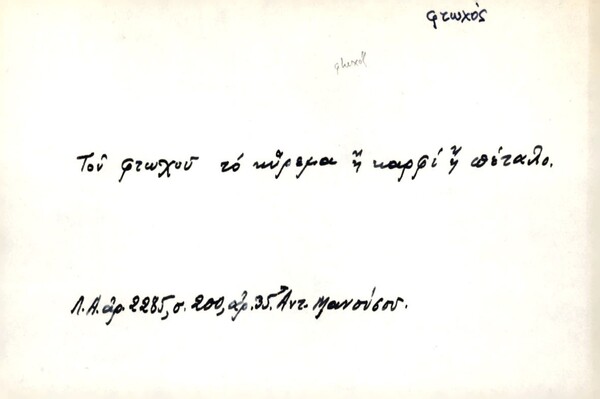 φτωχός
Τοῦ φτωχοῦ τό εὕρεμα ἤ καρφί ἤ πέταλο.
Λ.Α. ἀρ. 2285, σ. 200, ἀρ. 35. Ἀντ. Μανούσου.